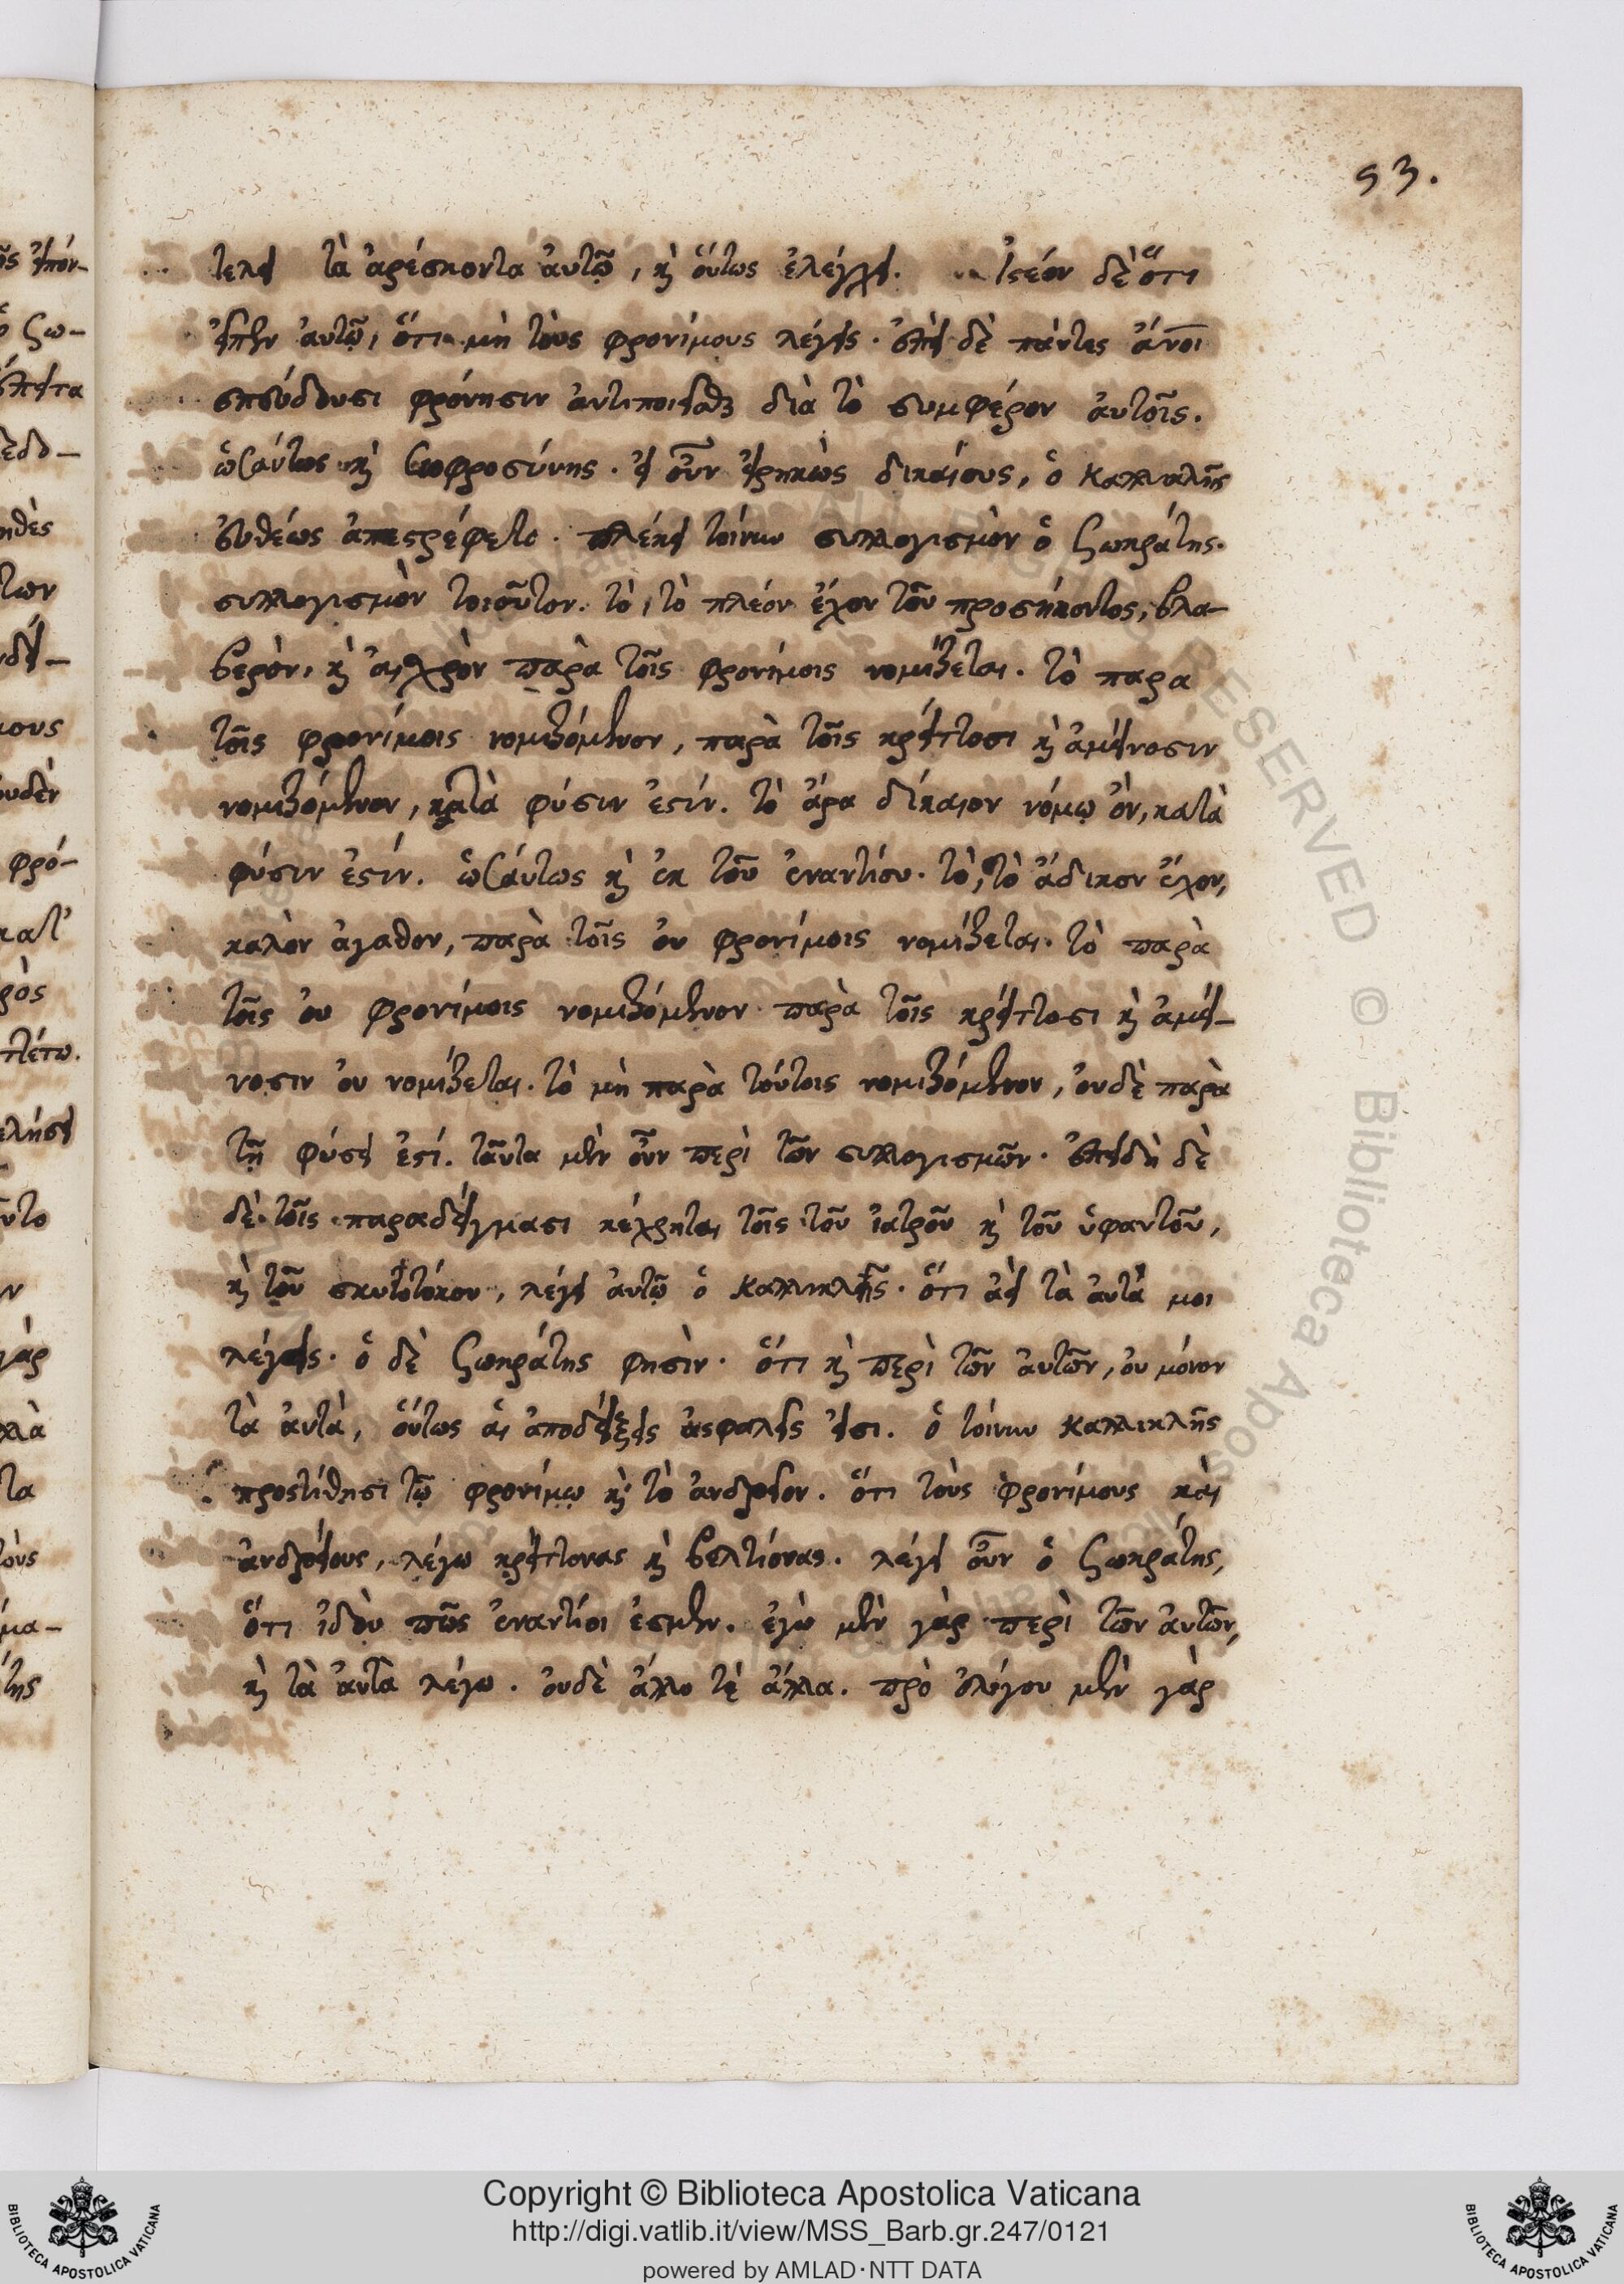 53.
τελεῖ τὰ ἀρέσκοντα ἀυτῷ, κὴ ὅυτως ἐλέγχει. Ἰστέον δὲ ὅτι
εἶπεν ἀυτῷ, ὅτι μὴ τὸυς φρονίμους λέγεις. ἐπεὶ δὲ πάντες ἄνοι
σπέυδουσι φρόνησιν ἀντιποιεῖσθαι διὰ τὸ συμφέρον ἀυτοῖς.
ὡσάυτως κὴ σωφροσύνης. εἰ οὖν εἰρηκὼς δικαίους, ὁ Καλλικλῆς
ἐυθέως ἀπεστρέφετο. πλέκει τοίνυν συλλογισμὸν ὁ Σωκράτης.
συλλογισμὸν τοιοῦτον. τὸ, τὸ πλέον ἔχον τοῦ προσήκοντος, βλα-
βερὸν, κὴ ἀισχρὸν παρὰ τοῖς φρονίμοις νομίζεται. τὸ παρα
τοῖς φρονίμοις νομιζόμενον, παρὰ τοῖς κρείττοσι κὴ ἀμείνοσιν
νομιζόμενον, κατὰ φύσιν ἐστίν. τὸ ἄρα δίκαιον νόμῳ ὂν, κατὰ
φύσιν ἐστίν. ὡσάυτως κὴ ἐκ τοῦ ἐναντίου. τὸ, τὸ ἄδικον ἔχον,
καλὸν ἀγαθον, παρὰ τοῖς ὀυ φρονίμοις νομίζεται. τὸ παρὰ
τοῖς ὀυ φρονίμοις νομιζόμενον παρὰ τοῖς κρείττοσι κὴ ἀμεί-
νοσιν ὀυ νομίζεται. τὸ μὴ παρὰ τούτοις νομιζόμενον, ὀυδὲ παρὰ
τῇ φύσει ἐστί. ταῦτα μὲν οὖν περὶ τῶν συλλογισμῶν. ἐπειδὴ δὲ
δὲ τοῖς παραδείγμασι κέχρηται τοῖς τοῦ ἰατροῦ κὴ τοῦ ὑφαντοῦ,
κὴ τοῦ σκυτοτόμου, λέγει ἀυτῷ ὁ Καλλικλῆς. ὅτι ἀεὶ τὰ ἀυτὰ μοι
λέγεις. ὁ δὲ Σωκράτης φησὶν. ὅτι κὴ περὶ τῶν ἀυτῶν, ὀυ μόνον
τὰ ἀυτὰ, ὅυτως ἁι ἀποδείξεις ἀσφαλεῖς εἰσι. ὁ τοίνυν Καλλικλῆς
προστίθησι τῷ φρονίμῳ κὴ τὸ ἀνδρεῖον. ὅτι τοὺς φρονίμους καὶ
ἀνδρείους, λέγω κρείττονας κὴ βελτίονας. λέγει οὖν ὁ Σωκράτης,
ὅτι ἰδοὺ πῶς ἐναντίοι ἐσμέν. ἐγὼ μὲν γὰρ περὶ τῶν ἀυτῶν,
κὴ τὰ ἀυτὰ λέγω. ὀυδὲ ἄλλο τε ἄλλα. πρὸ ὀλίγου μὲν γὰρ
Copyright © Biblioteca Apostolica Vaticana
http://digi.vatlib.it/view/MSS_Barb.gr.247/0121
powered by AMLAD·NTT DATA